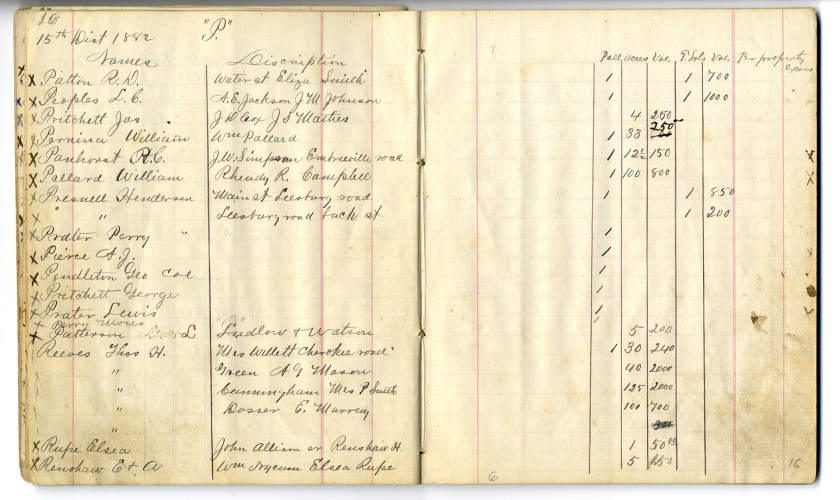 16
15th Dist 1882 "P."
Names Discription Poll acres Val. T. Lots Val. Per property
x Patton R. D. Water st Eliza Smith 1 1 700
x Peoples L. C. A. E. Jackson J M Johnson 1 1 1000
x Pritchett Jas J D Cox J S Mathes 4 250
x Pernina William Wm Pallard 1 33 250
x Panhorst R. C. J. W. Simpson Embreeville road 1 12½ 150
x Pallard William Rheudy R. Campbell 1 100 800
x Presnell Henderson Main st Leesburg road 1 1 850
x " " Leesburg road back st 1 200
x Prater Perry " 1
x Pierce A. J. 1
x Pendleton Geo Col 1
x Pritchett George 1
x Prater Lewis 1
x Perry Moses
x Patterson L Ludlow & Watson 5 200
Reeves Thos H. Mrs Willett Cherokee road 1 30 240
" Green A G Mason 40 2000
" Cunningham Mrs P Smith 125 2000
" Dosser E. Murray 100 700
"
x Rupe Elsea John Allison sr Renshaw H. 1 50 00
x Renshaw E & A Wm Elsea Rupe 5
6
16